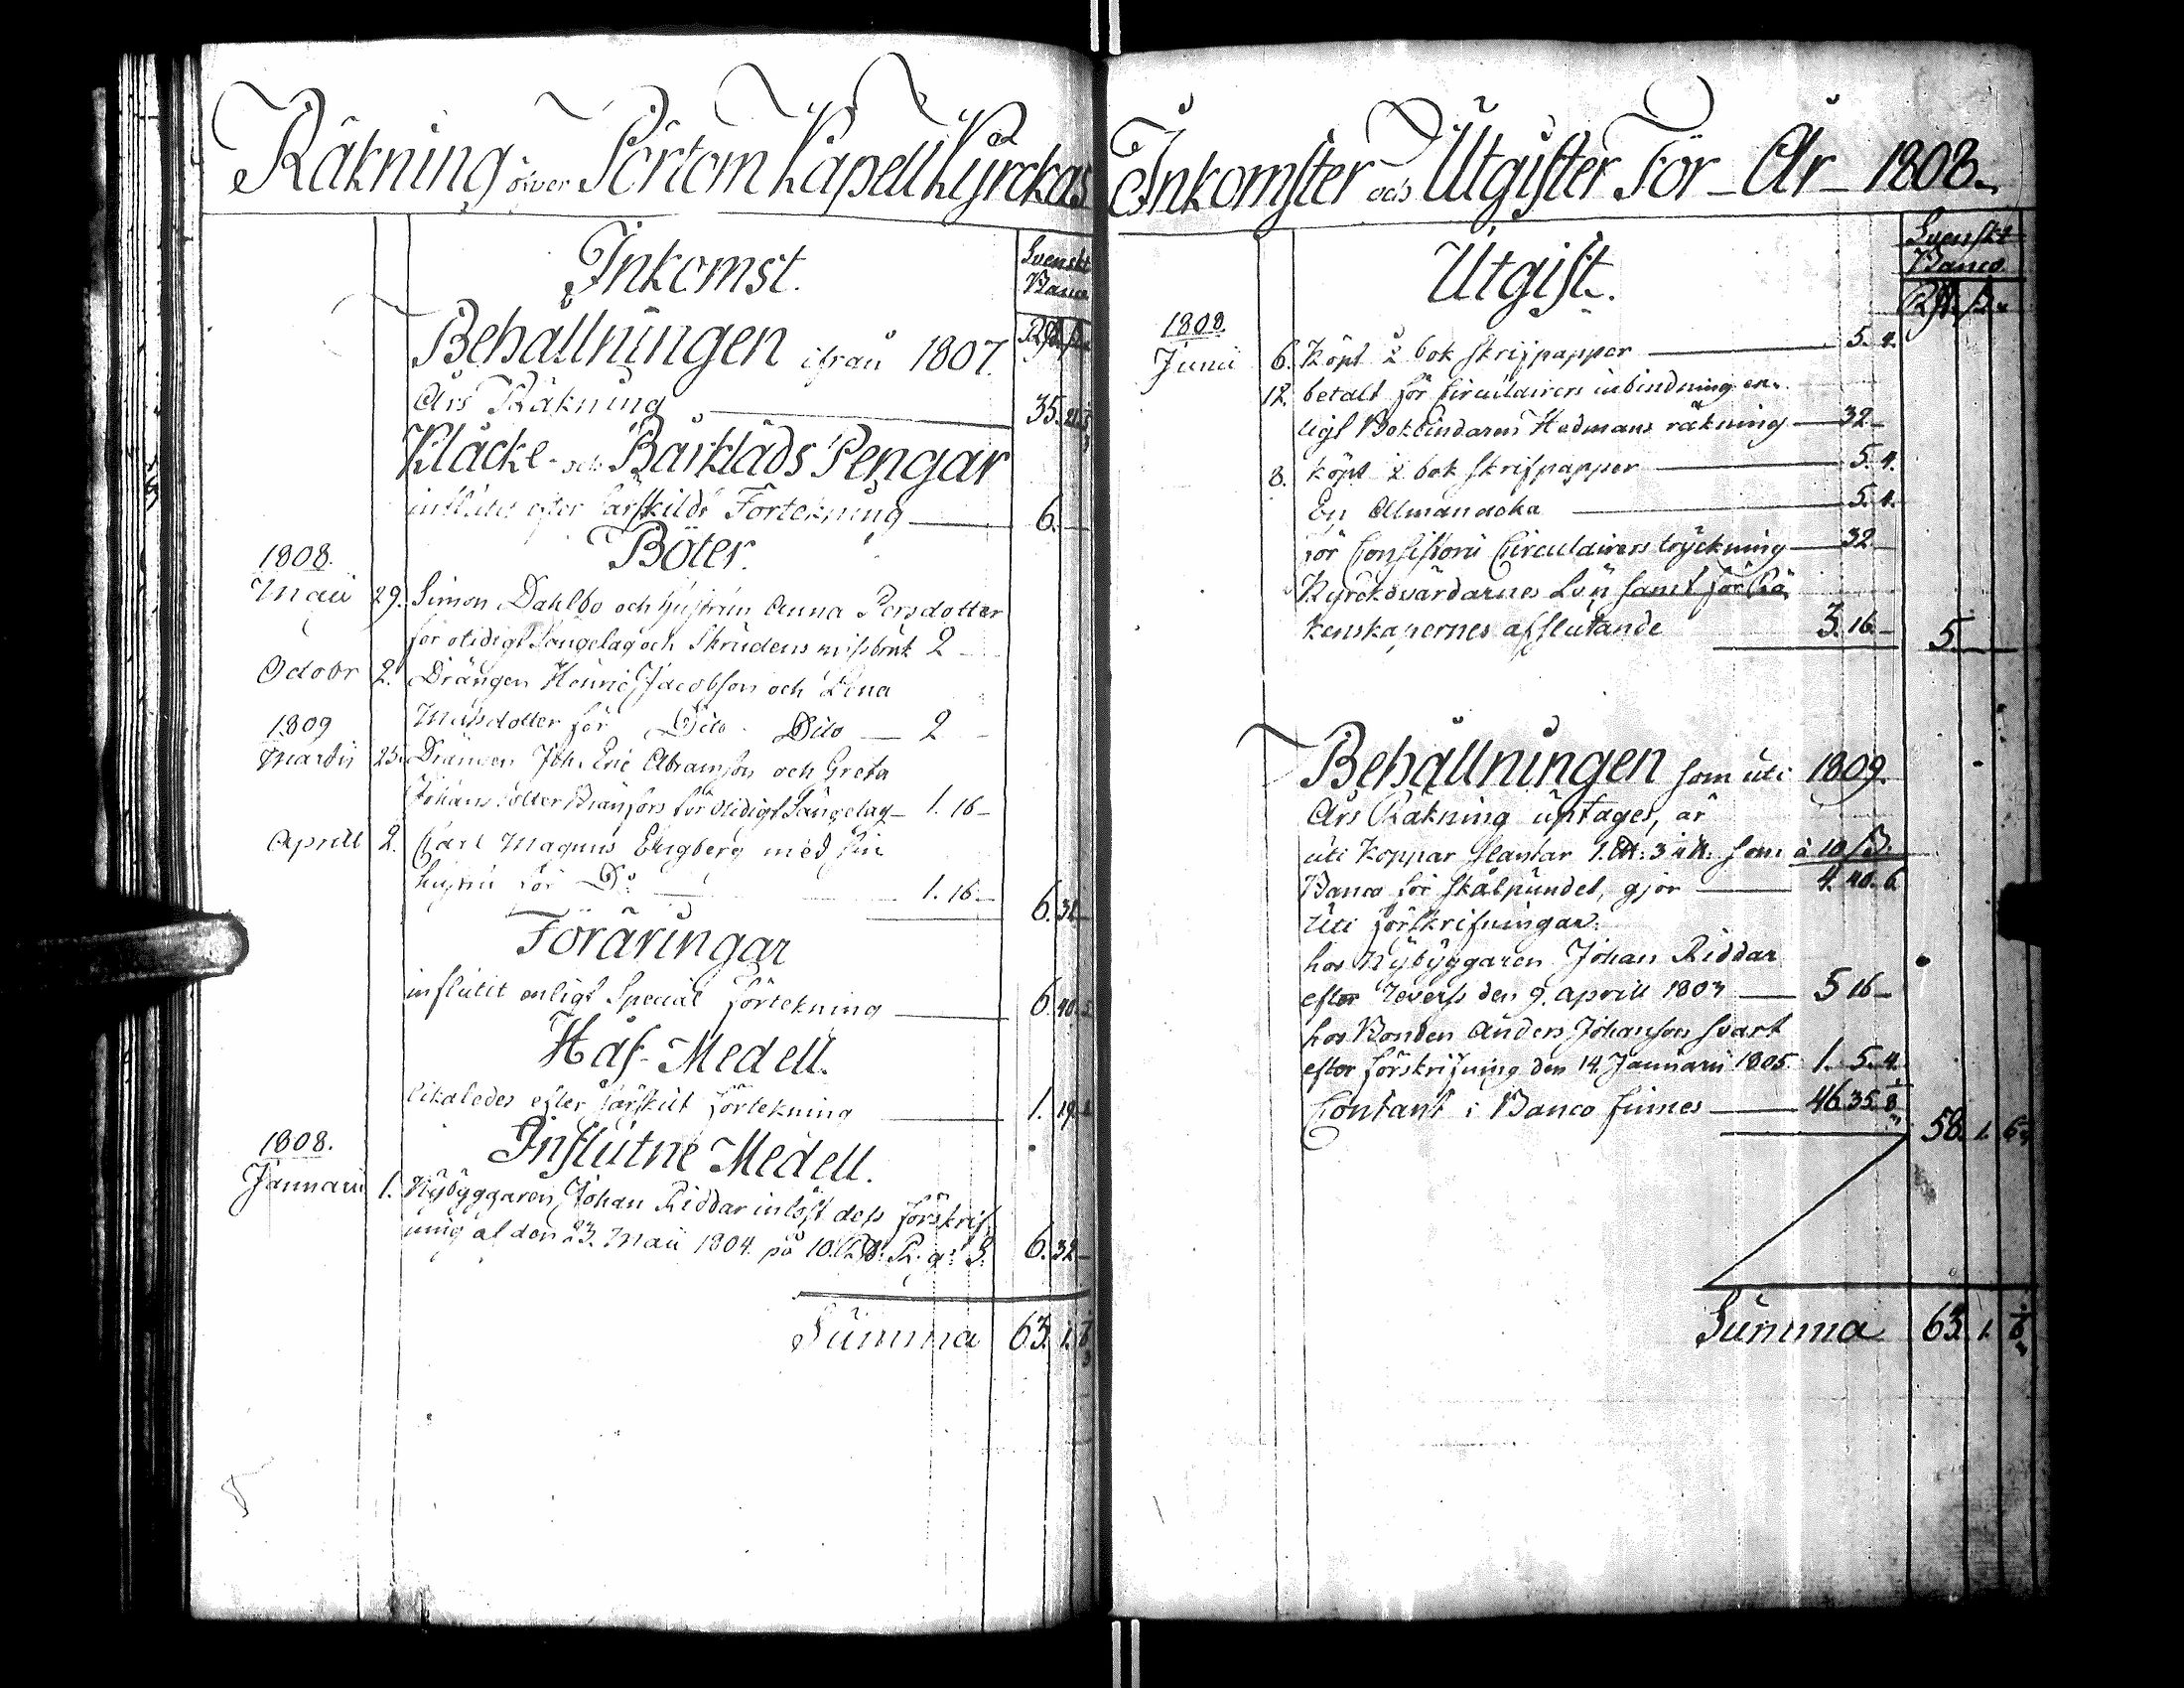 Räkning öfver Pörtom Kapell Kyrckas
Inkomst.
Svenskt
Banco
Behållningen ifrån 1807.
Års Räkning 35. 21.
Klåcke- och Bårkläds Pengar
influtit efter särskildt Förtekning 6.
Böter.
1808.
Maii 29. Simon Dahlbo och hustrun Anna Persdotter
för otidigt Sängelag och Skrudens missbruk 2
Octobr 2. Drängen Henric Jacobsson och Lena
Matsdotter för Dito Dito 2
1809
Martii 25. Drängen Joh. Eric Abramsson och Greta
Johansdotter för otidigt Sängelag 1. 16
Aprill 2. Carl Magnus Engberg med sin
hustru för Do 1. 16
6. 32
Föräringar
influtit enligt Special Förtekning 6. 40.
Håf-Medell.
likaledes efter särskilt förtekning 1. 19.
Influtne Medell.
1808.
Januarii 1. Nybyggaren Johan Riddar inlöst dess förskrif
ning af den 23. Maii 1804. på 10. 6. 32
Summa 63. 1.
Inkomster och Utgifter För År 1808.
Utgift.
Svenskt
Banco
1808.
Junii 6. Köpt 2 bok skrifpapper 5. 4.
12. betalt för Circulairers inbindning en-
ligt Bokbindaren Hedmans räkning 32
8. köpt 2 bok skrifpapper 5. 4.
En Almanacka 5. 4.
För Consistorii Circulairers tryckning 32
Kyrckovärdarnes Lön samt för Rä
kenskapernes afslutande 3. 16
5.
Behållningen som uti 1809.
Års Räkning uptages, är
uti Koppar slantar 1. som à 10
Banco för skålpundet, gjör 4. 40. 6
Uti förskrifningar.
hos Nybyggaren Johan Riddar
efter Reverss den 9. Aprill 1803 5 16
hos Bonden Anders Johansson Svart
efter förskrifning den 14. Januarii 1805. 1. 5. 4.
Contant i Banco finnes 46 35. 8
58. 1.
Summa 63. 1.